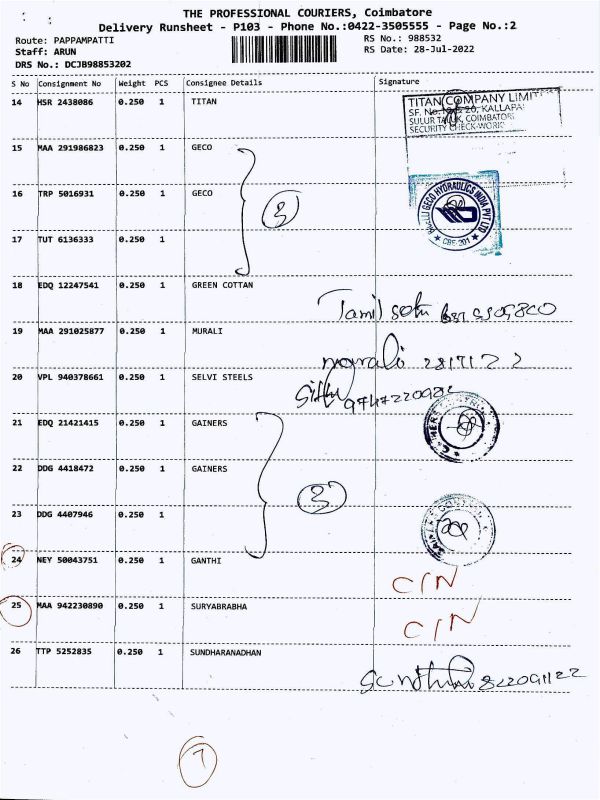 THE PROFESSIONAL COURIERS, Coimbatore
Delivery Runsheet - P103 - Phone No.:0422-3505555 - Page No.:2
Route: PAPPAMPATTI RS No.: 988532
Staff: ARUN RS Date: 28-Jul-2022
DRS No.: DCJB98853202
S No Consignment No Weight PCS Consignee Details Signature
14 HSR 2438086 0.250 1 TITAN
TITAN COMPANY LIMIT
KALLAPA
SULUR TALUK, COIMBATOR
SECURITY CHECK-WORK
15 MAA 291986823 0.250 1 GECO
16 TRP 5016931 0.250 1 GECO
3
GECO HYDRAULICS INDIA PVT LTD
CBE-201
17 TUT 6136333 0.250 1
18 EDQ 12247541 0.250 1 GREEN COTTAN
Tamil
19 MAA 291025877 0.250 1 MURALI
murali 2817122
20 VPL 940378661 0.250 1 SELVI STEELS
21 EDQ 21421415 0.250 1 GAINERS
22 DDG 4418472 0.250 1 GAINERS
3
23 DDG 4407946 0.250 1
24 NEY 50043751 0.250 1 GANTHI
C/N
25 MAA 942230890 0.250 1 SURYABRABHA
C/N
26 TTP 5252835 0.250 1 SUNDHARANADHAN
7